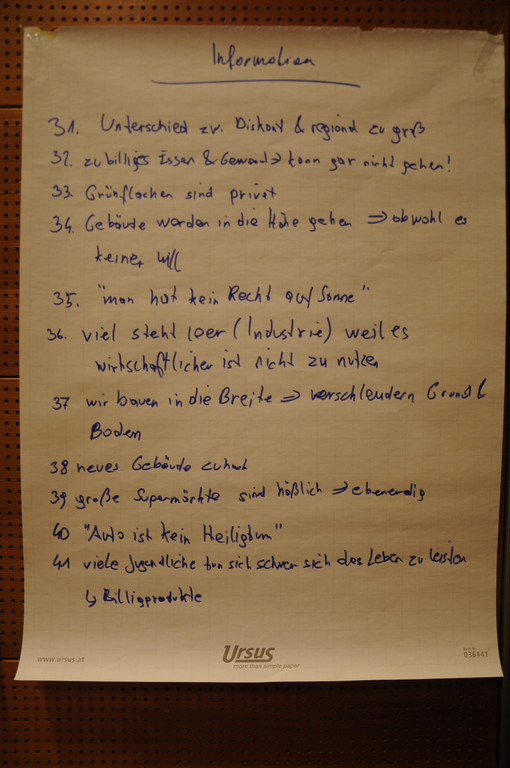 Information
31. Unterschied zw. Diskont & regional zu groß
32. zu billiges Essen & Gewand => kann gar nicht gehen!
33. Grünflächen sind privat
34. Gebäude werden in die Höhe gehen => obwohl es
keiner will
35. "man hat kein Recht auf Sonne"
36. viel steht leer (Industrie) weil es
wirtschaftlicher ist nicht zu nutzen
37 wir bauen in die Breite => verschleudern Grund &
Boden
38 neues Gebäude zu hoch
39 große Supermärkte sind häßlich => ebenerdig
40 "Auto ist kein Heiligtum"
41 viele Jugendliche tun sich schwer sich das Leben zu leisten
↳ Billigprodukte
www.ursus.at
Ursus
more than simple paper
036441